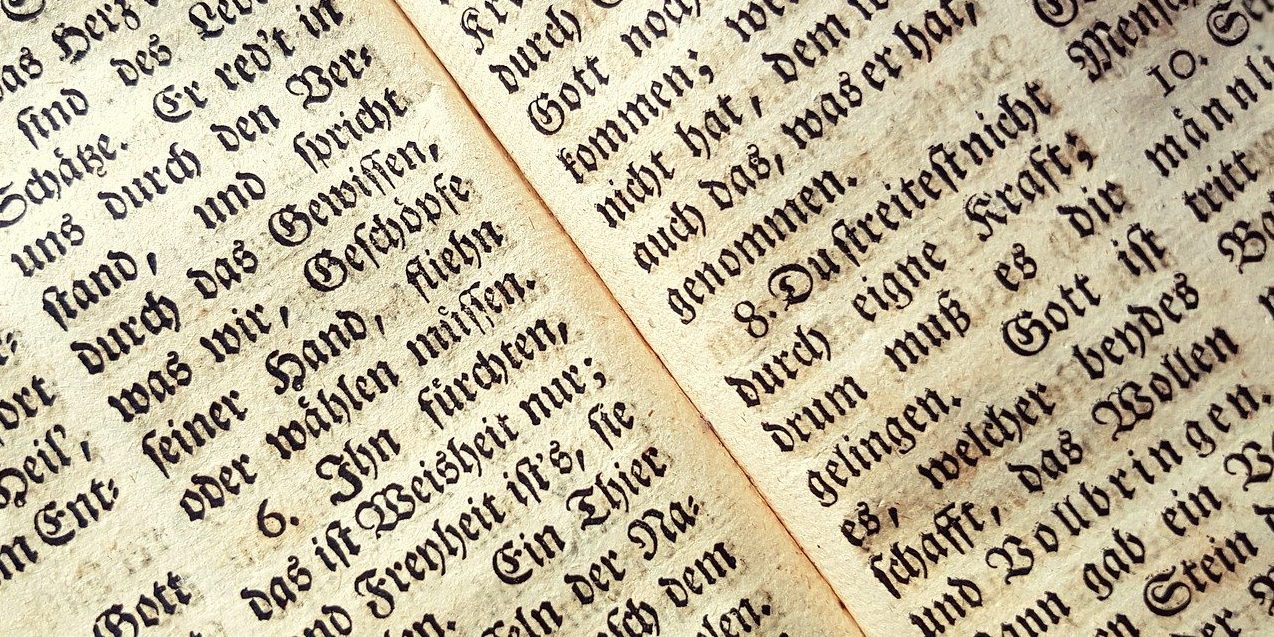 das Herz
sind des
Schätze. Er red't in
uns durch den Ver-
stand, und spricht
durch das Gewissen,
was wir, Geschöpfe
seiner Hand, fliehn
oder wählen müssen.
6. Ihn fürchten,
das ist Weisheit nur;
Freyheit ist's, sie
Ein Thier
der Na-
dem
ort
Heil',
Ent-
Gott
durch
Gott noch
kommen;
nicht hat, dem
auch das, was er hat,
genommen.
8. Du streitest nicht
durch eigne Kraft;
drum muß es dir
gelingen. Gott ist
es, welcher beydes
schafft, das Wollen
und Vollbringen.
gab ein
Stein
10.
männli
tritt